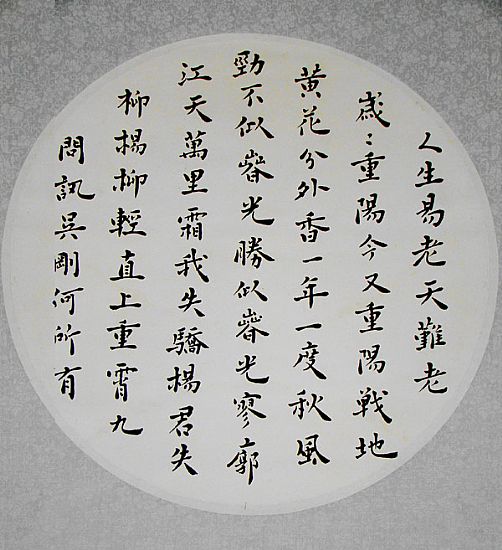 人生易老天難老
歲〻重陽今又重陽戰地
黃花分外香一年一度秋風
勁不似春光勝似春光寥廓
江天萬里霜我失驕楊君失
柳楊柳輕直上重霄九
問訊吳剛何所有